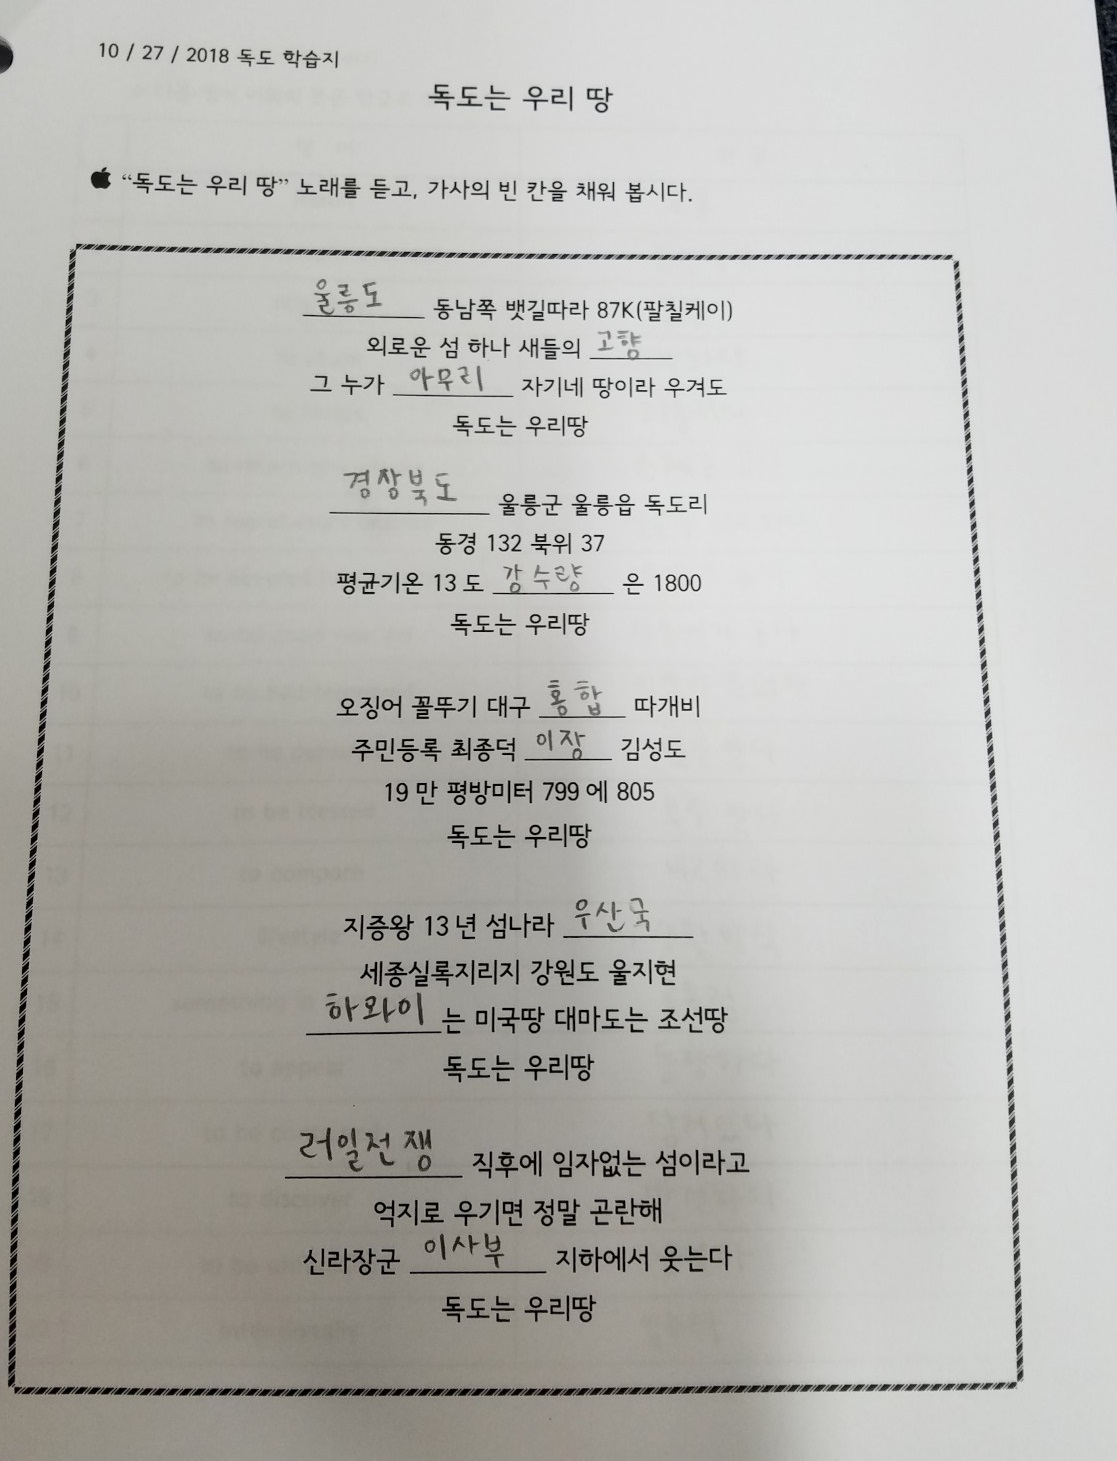 10 / 27 / 2018 독도 학습지
독도는 우리 땅
“독도는 우리 땅” 노래를 듣고, 가사의 빈 칸을 채워 봅시다.
울릉도 동남쪽 뱃길따라 87K(팔칠케이)
외로운 섬 하나 새들의 고향
그 누가 아무리 자기네 땅이라 우겨도
독도는 우리땅
경상북도 울릉군 울릉읍 독도리
동경 132 북위 37
평균기온 13 도 강수량 은 1800
독도는 우리땅
오징어 꼴뚜기 대구 홍합 따개비
주민등록 최종덕 이장 김성도
19 만 평방미터 799 에 805
독도는 우리땅
지증왕 13 년 섬나라 우산국
세종실록지리지 강원도 울지현
하와이 는 미국땅 대마도는 조선땅
독도는 우리땅
러일전쟁 직후에 임자없는 섬이라고
억지로 우기면 정말 곤란해
신라장군 이사부 지하에서 웃는다
독도는 우리땅